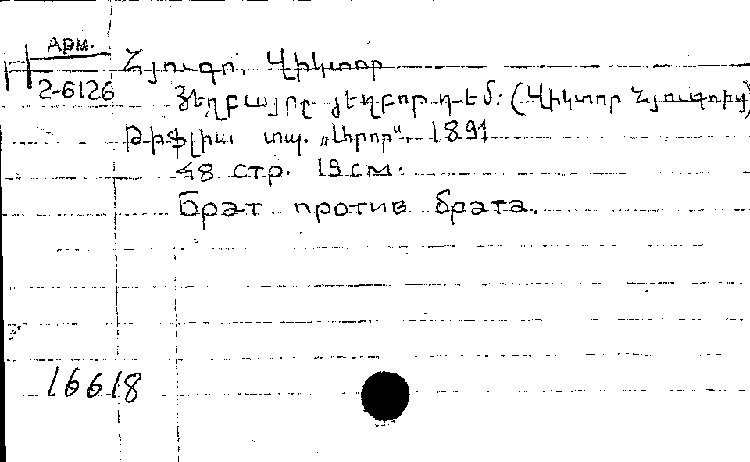 Арм.
2-6126
Հյուգո, Վիկտոր
Եղբայրը եղբոր դեմ: (Վիկտոր Հյուգոից)
Թիֆլիս տպ. „Հերոր“, 1891
48 стр. 19 см.
Брат против брата.
16618